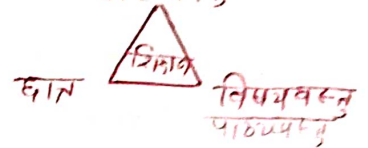 शिक्षण
छात्र
विषयवस्तु
पाठ्यवस्तु